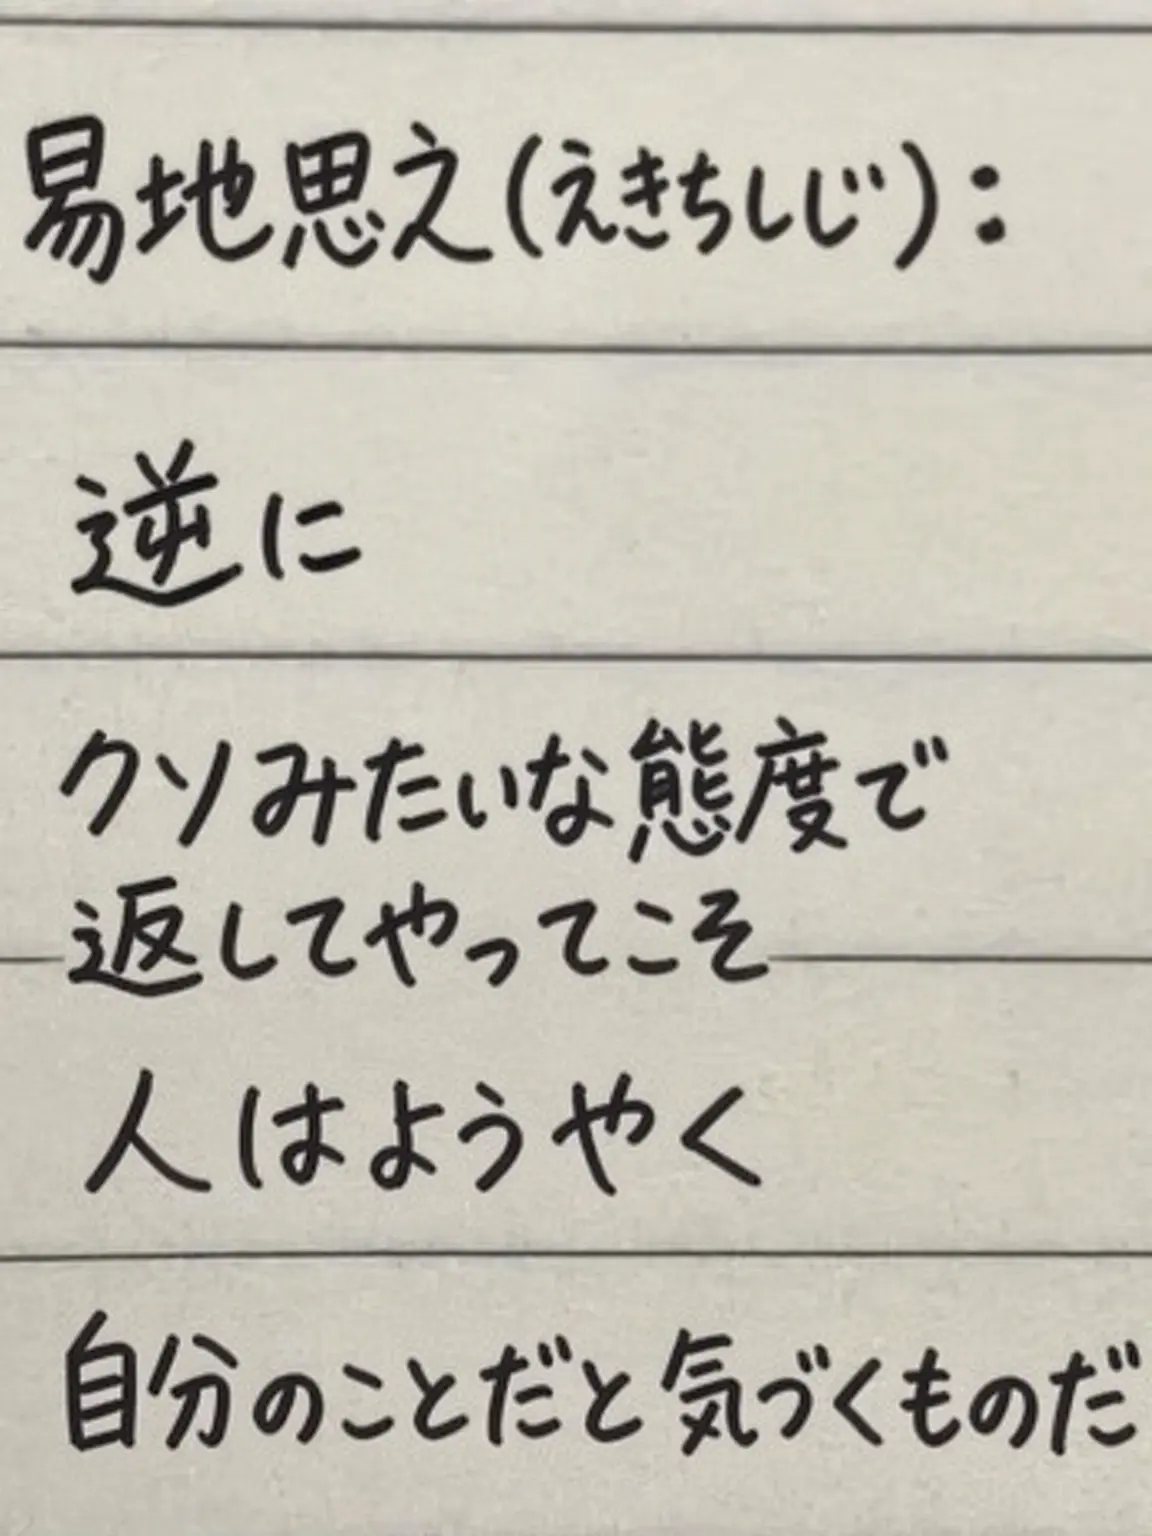 易地思え(えきちしじ):
逆に
クソみたいな態度で
返してやってこそ
人はようやく
自分のことだと気づくものだ